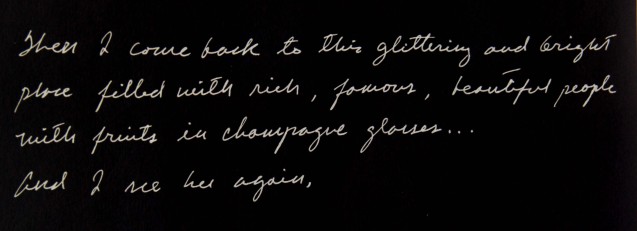 Then I come back to this glittering and bright
place filled with rich, famous, beautiful people
with fruits in champagne glasses...
And I see her again.